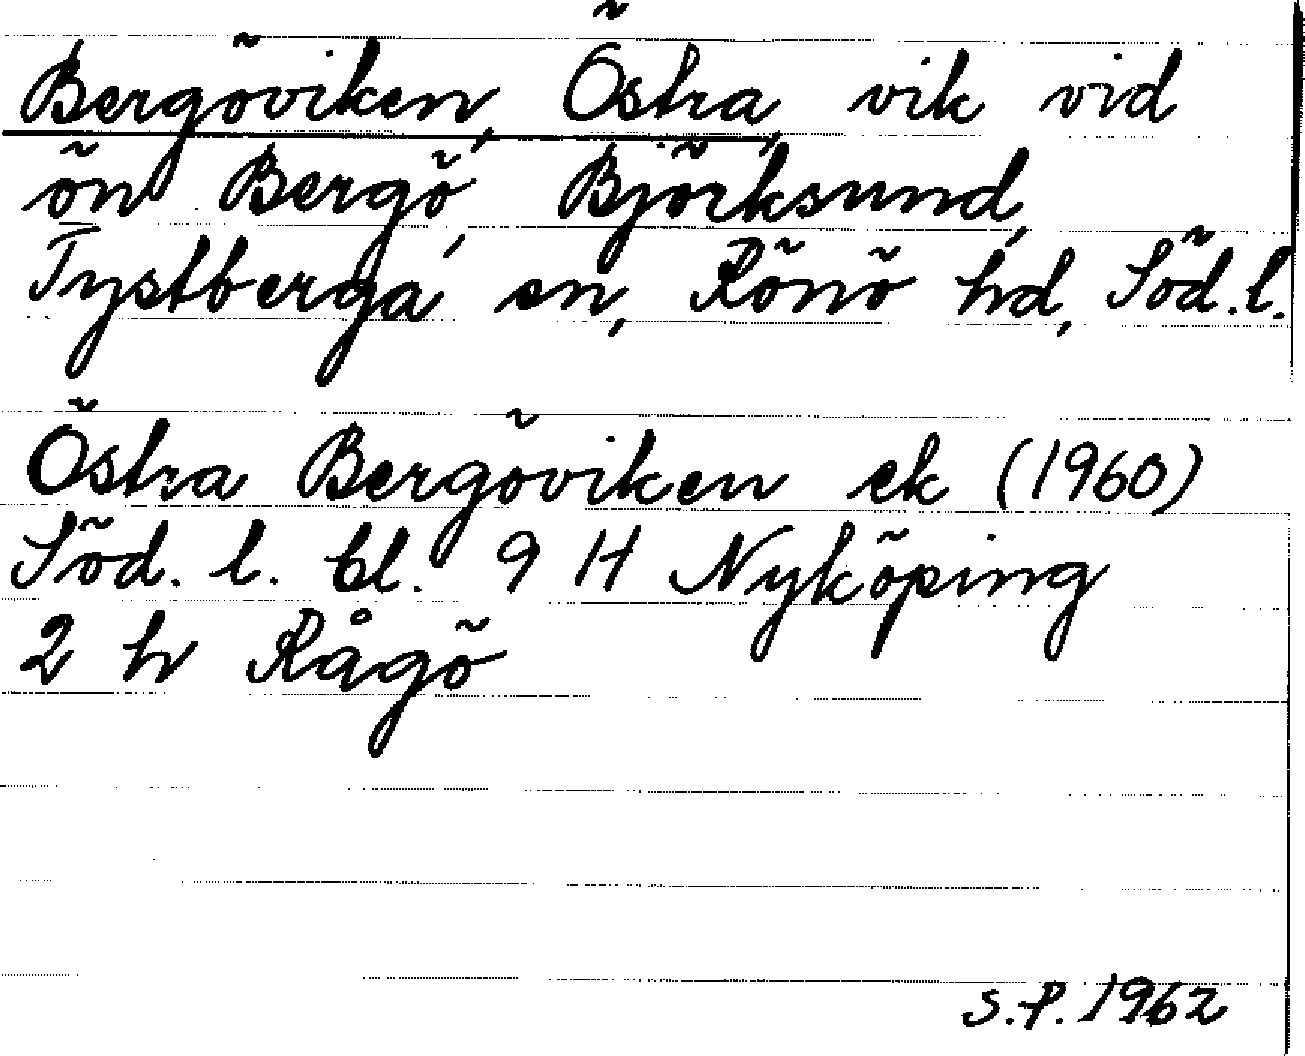 Bergöviken, Östra, vik vid
ön Bergö, Björksund,
Tystberga sn, Rönö hd, Söd. l.
Östra Bergöviken ek (1960)
Söd. l. bl. 9 H Nyköping
2 h Rågö
S.P. 1962